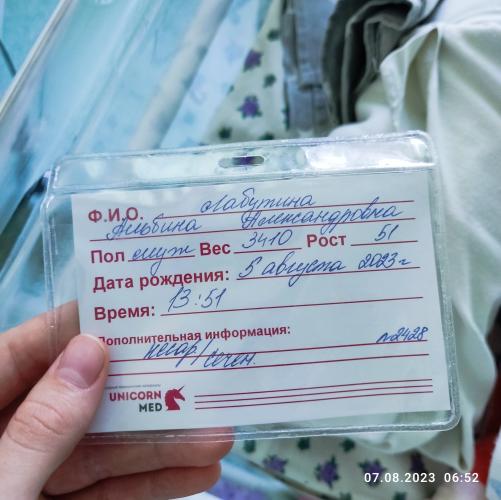 Ф.И.О. Лабутина
Альбина Александровна
Пол муж Вес 3410 Рост 51
Дата рождения: 5 августа 2023 г
Время: 13:51
Дополнительная информация: №2428
кесар/сечен.
UNICORN
MED
07.08.2023 06:52